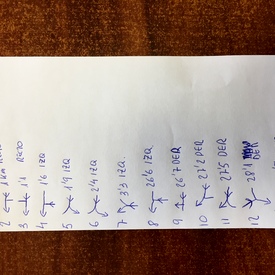 2 1 km Recto
3 1'1 Recto
4 1'6 IZQ
5 1'9 IZQ
6 2'4 IZQ
7 3'3 IZQ.
8 26'6 IZQ
9 26'7 DER
10 27'2 DER
11 27'5 DER
12 28'1 DER